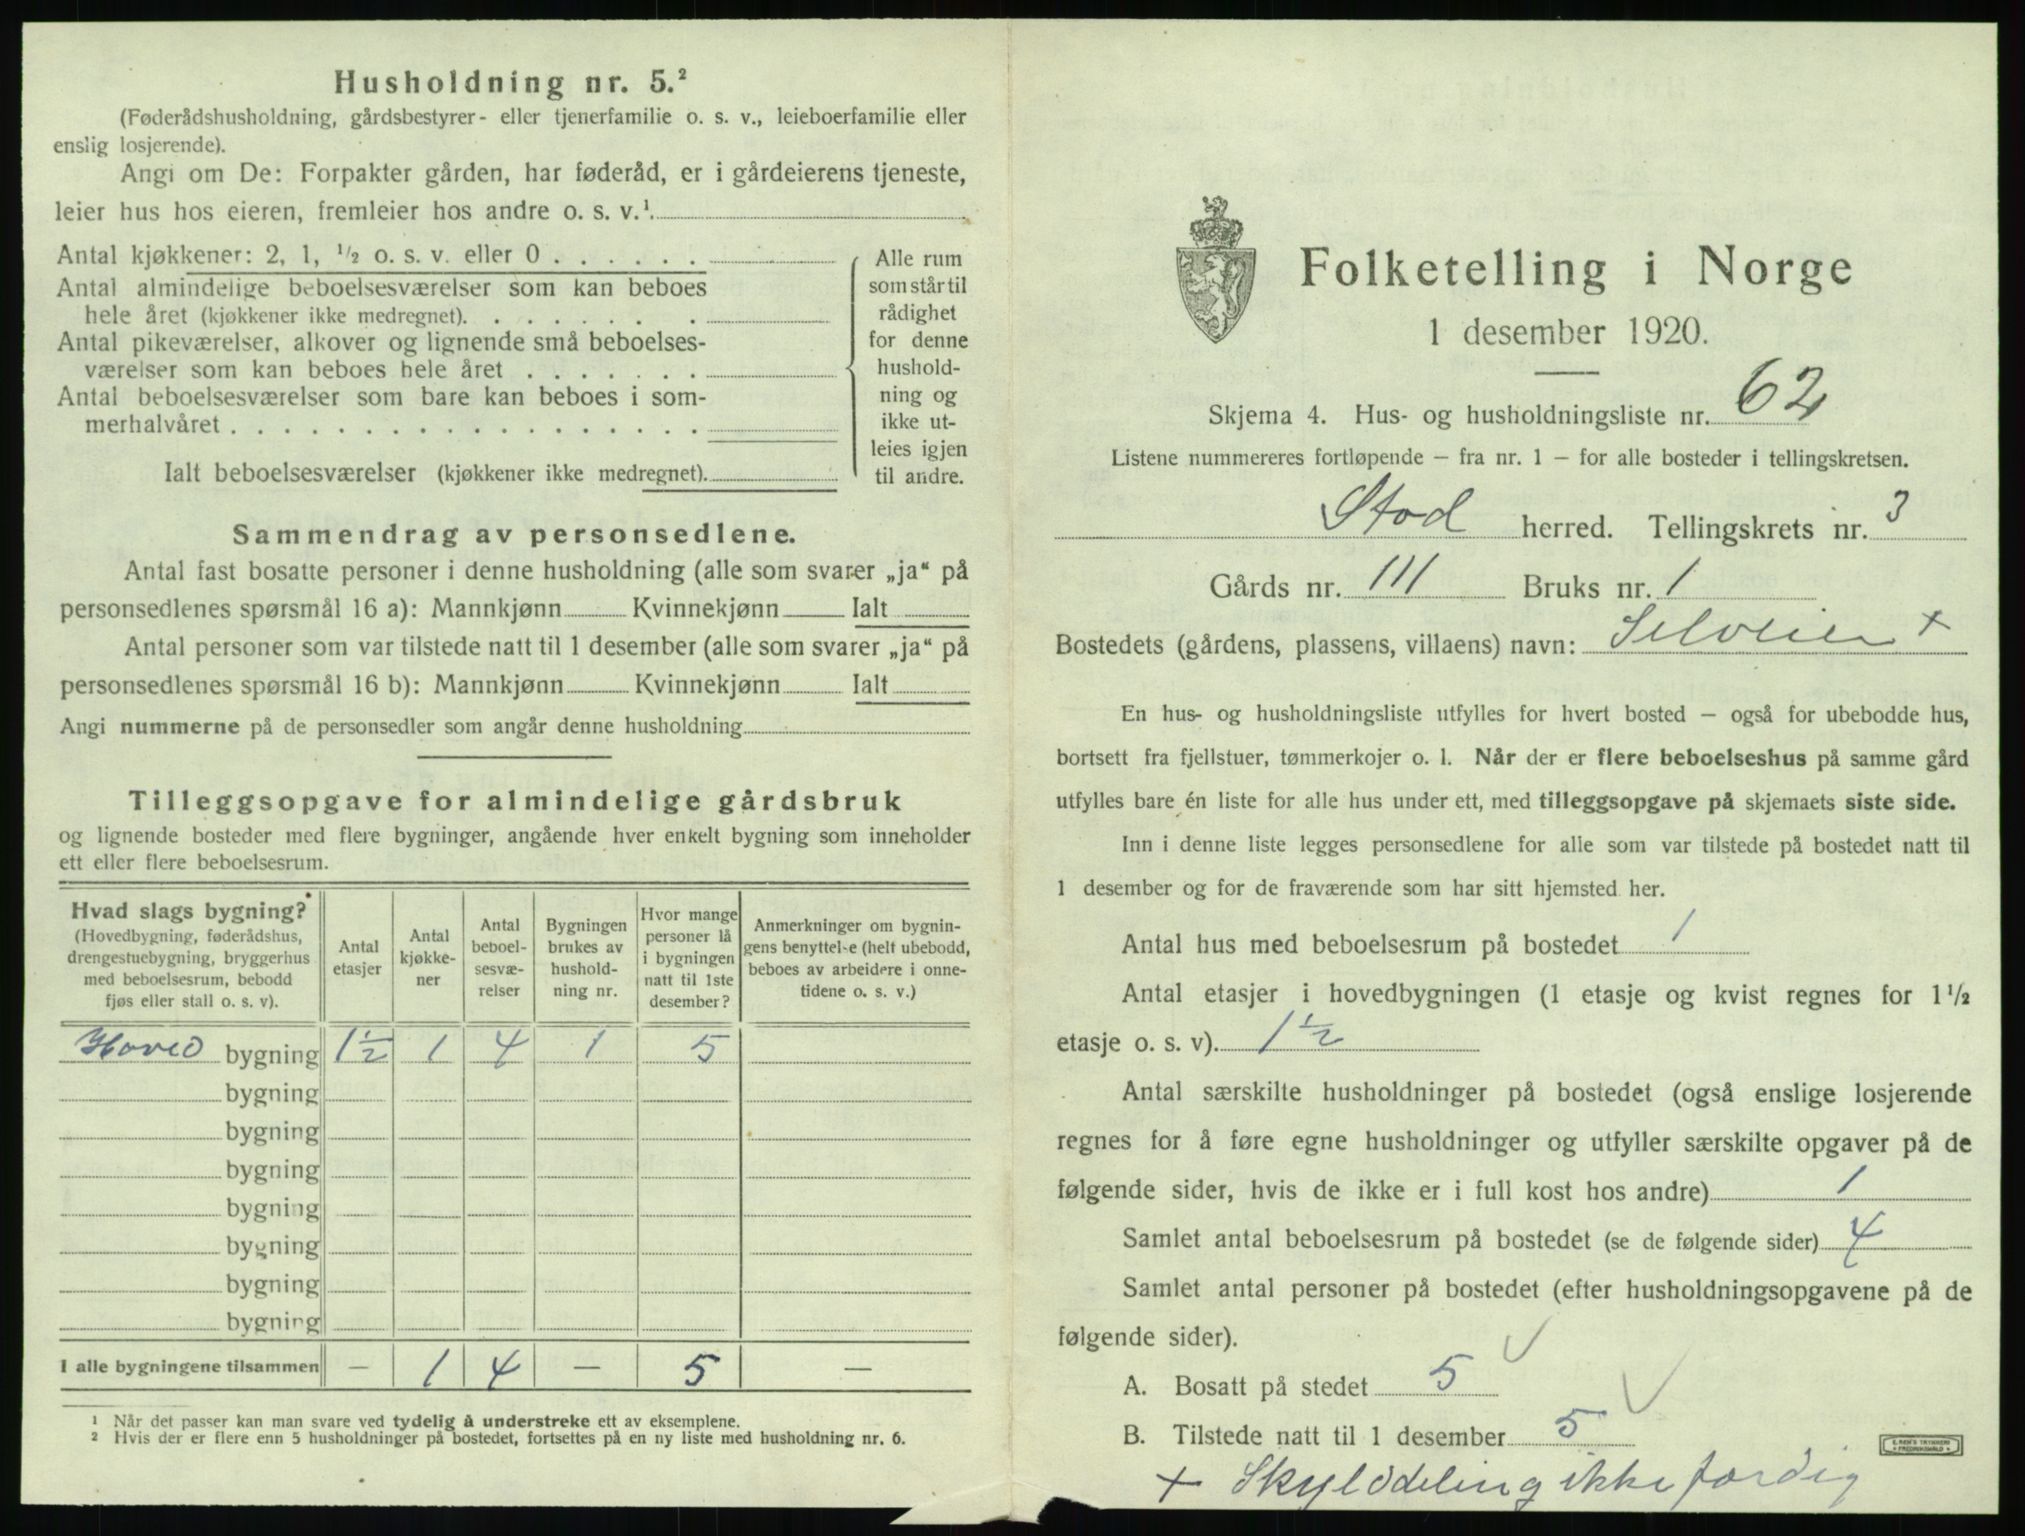 Husholdning nr. 5.²
(Føderådshusholdning, gårdsbestyrer- eller tjenerfamilie o. s. v., leieboerfamilie eller
enslig losjerende).
Angi om De: Forpakter gården, har føderåd, er i gårdeierens tjeneste,
leier hus hos eieren, fremleier hos andre o. s. v.¹
Antal kjøkkener: 2, 1, ½ o. s. v. eller 0 . . . . . .
Antal almindelige beboelsesværelser som kan beboes
hele året (kjøkkener ikke medregnet). . . . . . . .
Antal pikeværelser, alkover og lignende små beboelses-
værelser som kan beboes hele året . . . . . . .
Antal beboelsesværelser som bare kan beboes i som-
merhalvåret . . . . . . . . . . . . . . . . .
Ialt beboelsesværelser (kjøkkener ikke medregnet).
Alle rum
som står til
rådighet
for denne
hushold-
ning og
ikke ut-
leies igjen
til andre.
Sammendrag av personsedlene.
Antal fast bosatte personer i denne husholdning (alle som svarer „ja“ på
personsedlenes spørsmål 16 a): Mannkjønn Kvinnekjønn Ialt
Antal personer som var tilstede natt til 1 desember (alle som svarer „ja“ på
personsedlenes spørsmål 16 b): Mannkjønn Kvinnekjønn Ialt
Angi nummerne på de personsedler som angår denne husholdning
Tilleggsopgave for almindelige gårdsbruk
og lignende bosteder med flere bygninger, angående hver enkelt bygning som inneholder
ett eller flere beboelsesrum.
Hvad slags bygning?
(Hovedbygning, føderådshus,
drengestuebygning, bryggerhus
med beboelsesrum, bebodd
fjøs eller stall o. s. v).
Antal
etasjer
Antal
kjøkke-
ner
Antal
beboel-
sesvæ-
relser
Bygningen
brukes av
hushold-
ning nr.
Hvor mange
personer lå
i bygningen
natt til 1ste
desember?
Anmerkninger om bygnin-
gens benyttelse (helt ubebodd,
beboes av arbeidere i onne-
tidene o. s. v.)
Hoved bygning 1½ 1 4 1 5
bygning
bygning
bygning
bygning
bygning
bygning
bygning
I alle bygningene tilsammen — 1 4 — 5 —
¹ Når det passer kan man svare ved tydelig å understreke ett av eksemplene.
² Hvis der er flere enn 5 husholdninger på bostedet, fortsettes på en ny liste med husholdning nr. 6.
Folketelling i Norge
1 desember 1920.
Skjema 4. Hus- og husholdningsliste nr. 62
Listene nummereres fortløpende – fra nr. 1 – for alle bosteder i tellingskretsen.
Stod herred. Tellingskrets nr. 3
Gårds nr. 111 Bruks nr. 1
Bostedets (gårdens, plassens, villaens) navn: Selveier +
En hus- og husholdningsliste utfylles for hvert bosted – også for ubebodde hus,
bortsett fra fjellstuer, tømmerkojer o. l. Når der er flere beboelseshus på samme gård
utfylles bare én liste for alle hus under ett, med tilleggsopgave på skjemaets siste side.
Inn i denne liste legges personsedlene for alle som var tilstede på bostedet natt til
1 desember og for de fraværende som har sitt hjemsted her.
Antal hus med beboelsesrum på bostedet 1
Antal etasjer i hovedbygningen (1 etasje og kvist regnes for 1½
etasje o. s. v). 1½
Antal særskilte husholdninger på bostedet (også enslige losjerende
regnes for å føre egne husholdninger og utfyller særskilte opgaver på de
følgende sider, hvis de ikke er i full kost hos andre) 1
Samlet antal beboelsesrum på bostedet (se de følgende sider) 4
Samlet antal personer på bostedet (efter husholdningsopgavene på de
følgende sider).
A. Bosatt på stedet 5
B. Tilstede natt til 1 desember 5
+ Skylddeling ikke færdig